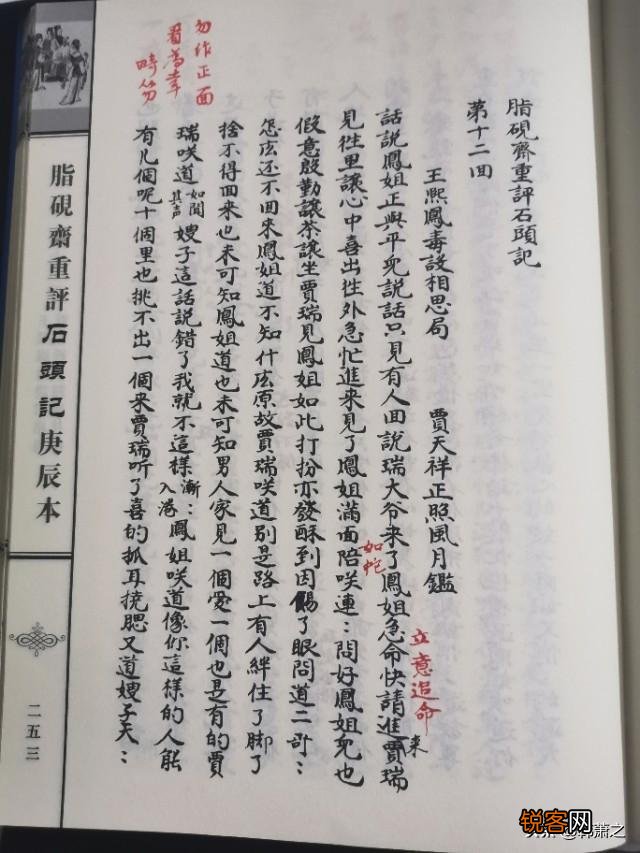 脂硯齋重評石頭記
第十二回
王熙鳳毒設相思局 賈天祥正照風月鑑
話說鳳姐正與平兒說話只見有人回說瑞大爷来了鳳姐急命快請進來賈瑞
立意追命
見徃里讓心中喜出徃外急忙進来見了鳳姐滿面陪咲連:問好鳳姐兒也
如蛇
假意殷勤讓茶讓坐賈瑞見鳳姐如此打扮亦發酥到因餳了眼問道二哥:
怎庅还不回来鳳姐道不知什庅原故賈瑞咲道别是路上有人絆住了脚了
捨不得回来也未可知鳳姐道也未可知男人家見一個愛一個也是有的賈
瑞咲道如聞其声嫂子這話說錯了我就不這樣漸:入港鳳姐咲道像你這樣的人能
有几個呢十個里也挑不出一個来賈瑞听了喜的抓耳撓腮又道嫂子天:
勿作正面
看為幸
畸笏
脂硯齋重評石頭記庚辰本
二五三
锐客网
萧之